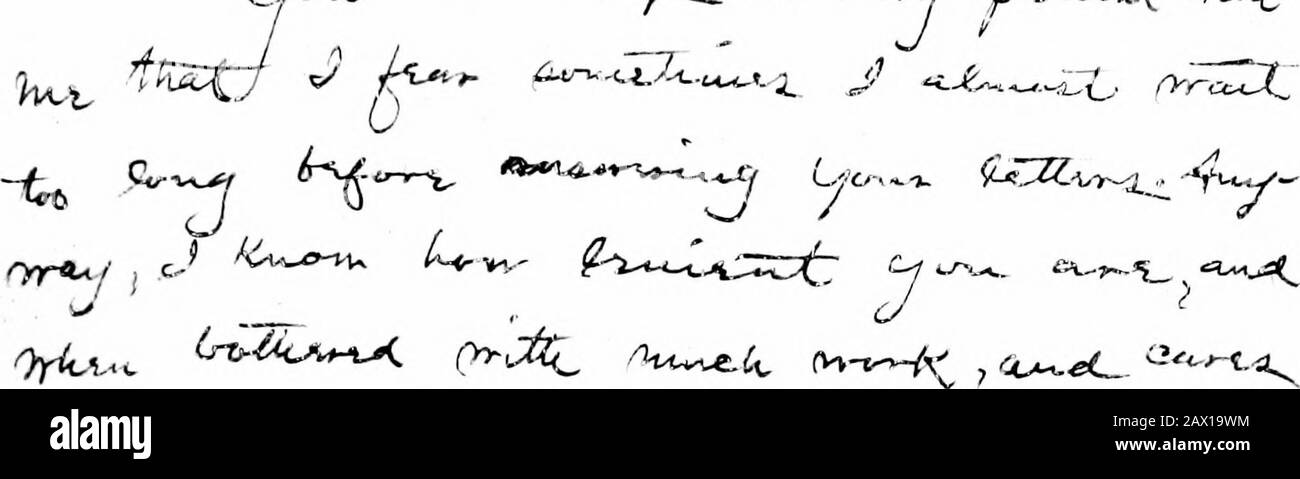 me that I fear sometimes I almost wait
too long before answering your letters. Any-
way, I know how lenient you are, and
when bothered with much work, and cares
alamy
Image ID: 2AX19WM
www.alamy.com